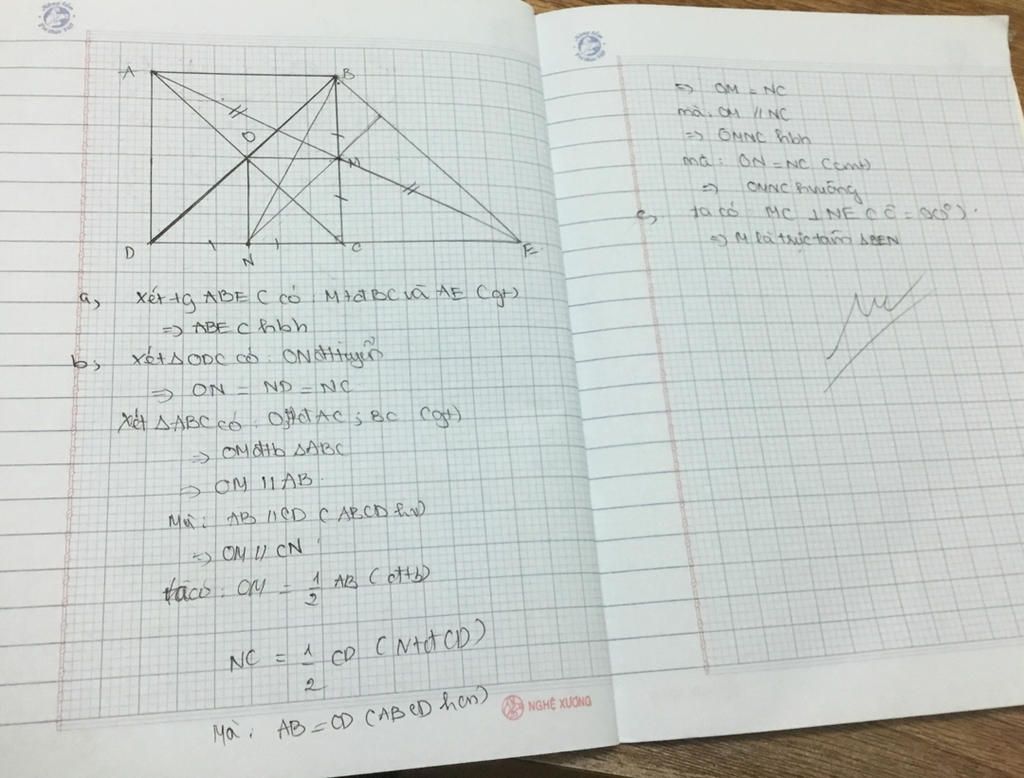 A
B
O
M
D
N
C
E
a, Xét tg ABEC có M tđ BC và AE (gt)
=> ABEC hbh
b, Xét △ODC có ON đttuyến
=> ON = ND = NC
Xét △ABC có O, M tđ AC; BC (gt)
=> OM đtb △ABC
=> OM // AB.
Mà: AB // CD (ABCD hv)
=> OM // CN
ta có: OM = 1/2 AB (đtb)
NC = 1/2 CD (N tđ CD)
Mà: AB = CD (ABCD hcn)
NGHỆ XƯƠNG
=> OM = NC
mà: OM // NC
=> OMNC hbh
mà: ON = NC (cmt)
=> OMNC hvuông
c, ta có MC ⊥ NE (Ĉ = 90°).
=> M là trực tâm △BEN